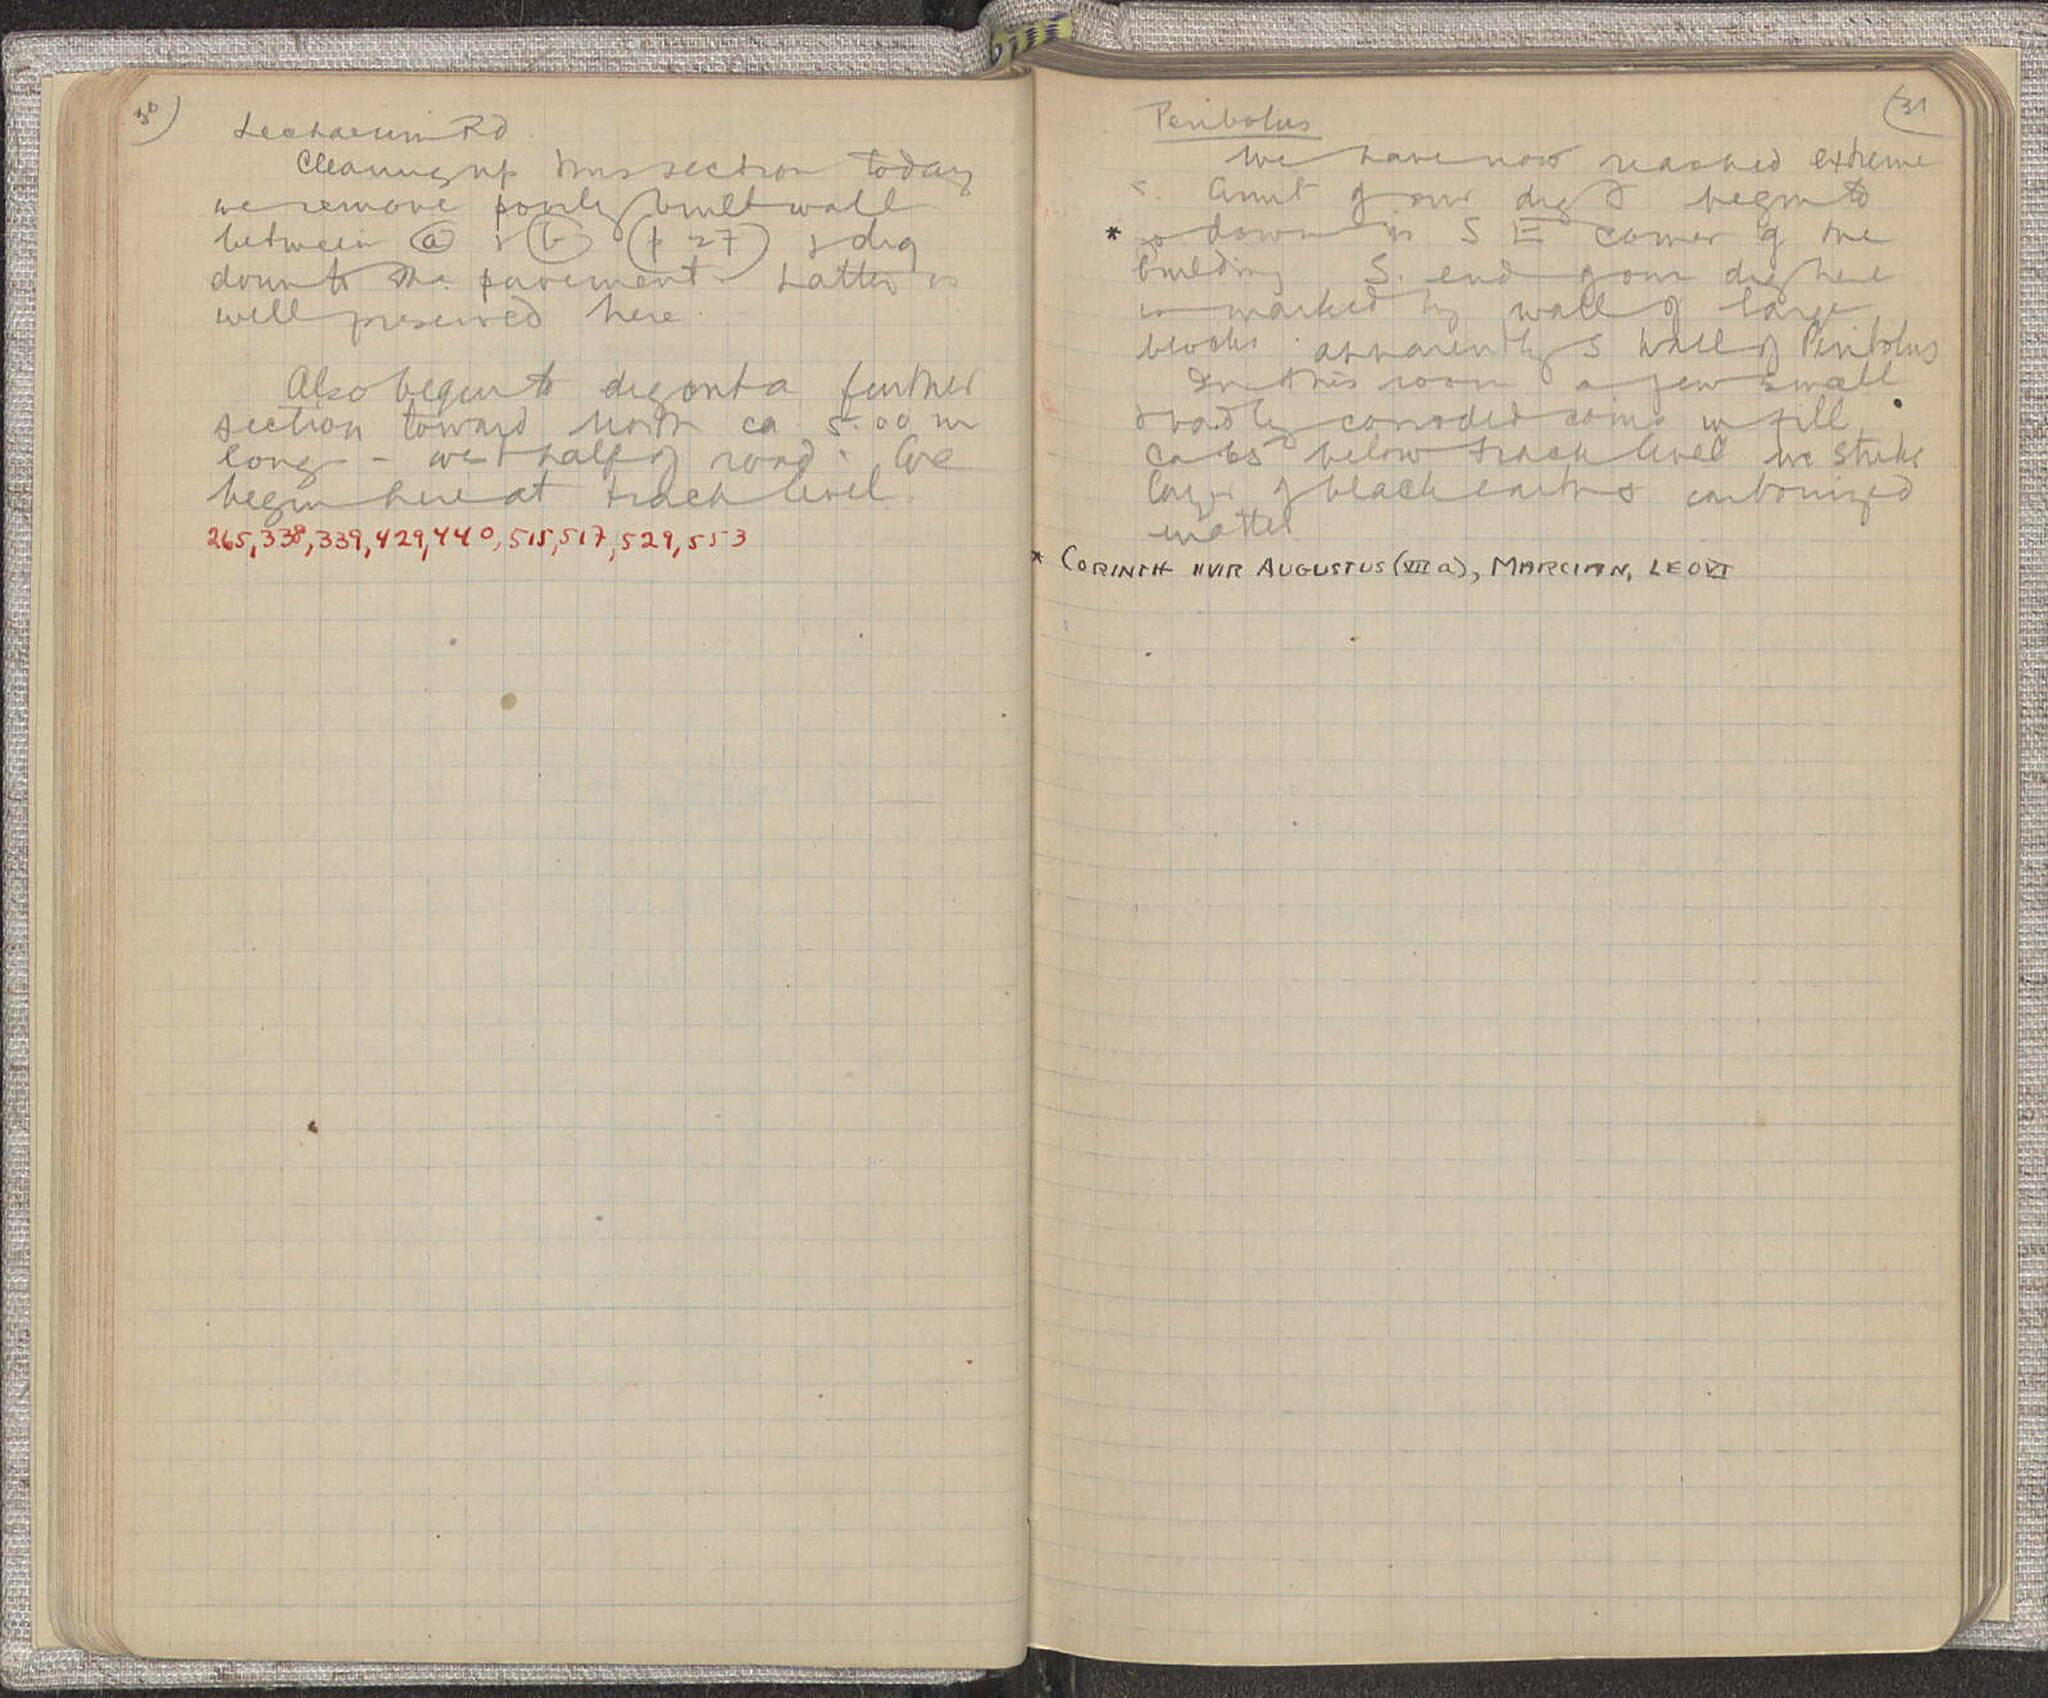 30)
Lechaeum Rd.
Cleaning up this section today
we remove poorly built wall
between (a) & (b) (p 27) & dig
down to the pavement. Latter is
well preserved here.
Also begin to dig out a further
section toward North ca 5.00 m
long - west half of road. We
begin here at track level.
265, 338, 339, 429, 440, 515, 517, 529, 553
(31
Peribolus
We have now reached extreme
S. limit of our dig & begin to
* go down in S E corner of the
building S. end of our dig here
is marked by wall of large
blocks apparently S wall of Peribolus
In this room a few small
& badly corroded coins in fill.
Ca below track level we strike
layer of black earth & carbonized
matter
* CORINTH IIVIR AUGUSTUS (VII a), MARCIAN, LEO VI